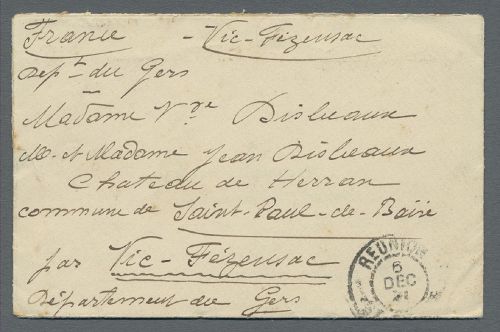 France - Vic-Fezensac
Dépt. du Gers
Madame Vve Disbeaux
M. et Madame Jean Disbeaux
Chateau de Herran
commune de Saint-Paul-de-Baïse
par Vic-Fézensac
Département du Gers
REUNION
6
DEC